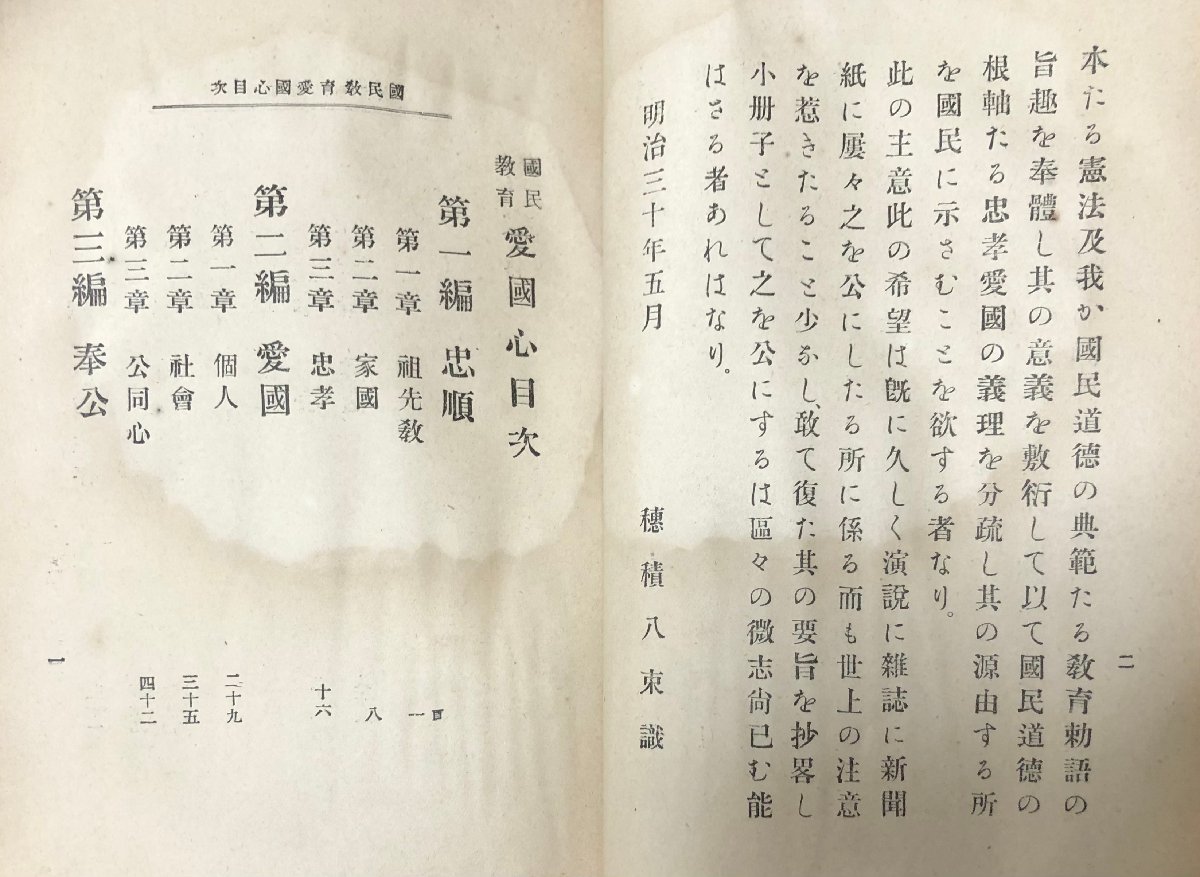 二
本たる憲法及我か國民道德の典範たる敎育勅語の
旨趣を奉體し其の意義を敷衍して以て國民道德の
根軸たる忠孝愛國の義理を分疏し其の源由する所
を國民に示さむことを欲する者なり。
此の主意此の希望は旣に久しく演說に雜誌に新聞
紙に屢々之を公にしたる所に係る而も世上の注意
を惹きたること少なし、敢て復た其の要旨を抄畧し
小册子として之を公にするは區々の微志尙已む能
はさる者あれはなり。
明治三十年五月
穗積八束識
國民敎育愛國心目次
國民敎育 愛國心目次
第一編 忠順
第一章 祖先敎 頁一
第二章 家國 八
第三章 忠孝 十六
第二編 愛國
第一章 個人 二十九
第二章 社會 三十五
第三章 公同心 四十二
第三編 奉公
一